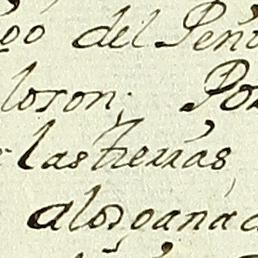 del Peni
loson; Po
las tierras
alos ganad